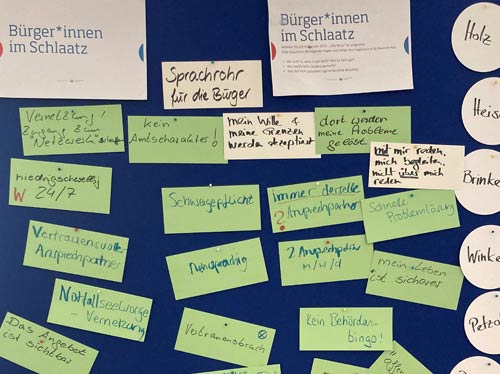 Bürger*innen
im Schlaatz
Bürger*innen
im Schlaatz
Holz
Sprachrohr
für die Bürger
Vernetzung!
Zugang zum
"Netzwerk" schaffen
kein
Amtscharakter!
mein Wille &
meine Grenzen
werden akzeptiert
dort werden
meine Probleme
gelöst
mit mir reden,
mich begleiten,
nicht über mich
reden
Heise
niedrigschwellig
W 24/7
Schweigepflicht
immer derselbe
? Ansprechpartner
Schnelle Problemlösung
Brinke
Vertrauensvolle
Ansprechpartner
Mehrsprachig
2 Ansprechpartner
m/w/d
mein Leben
ist sicherer
Winke
Notfallseelsorge
- Vernetzung
Vertrauensbruch
Kein Behörden-
bingo!
Petzo
Das Angebot
ist sichtbar